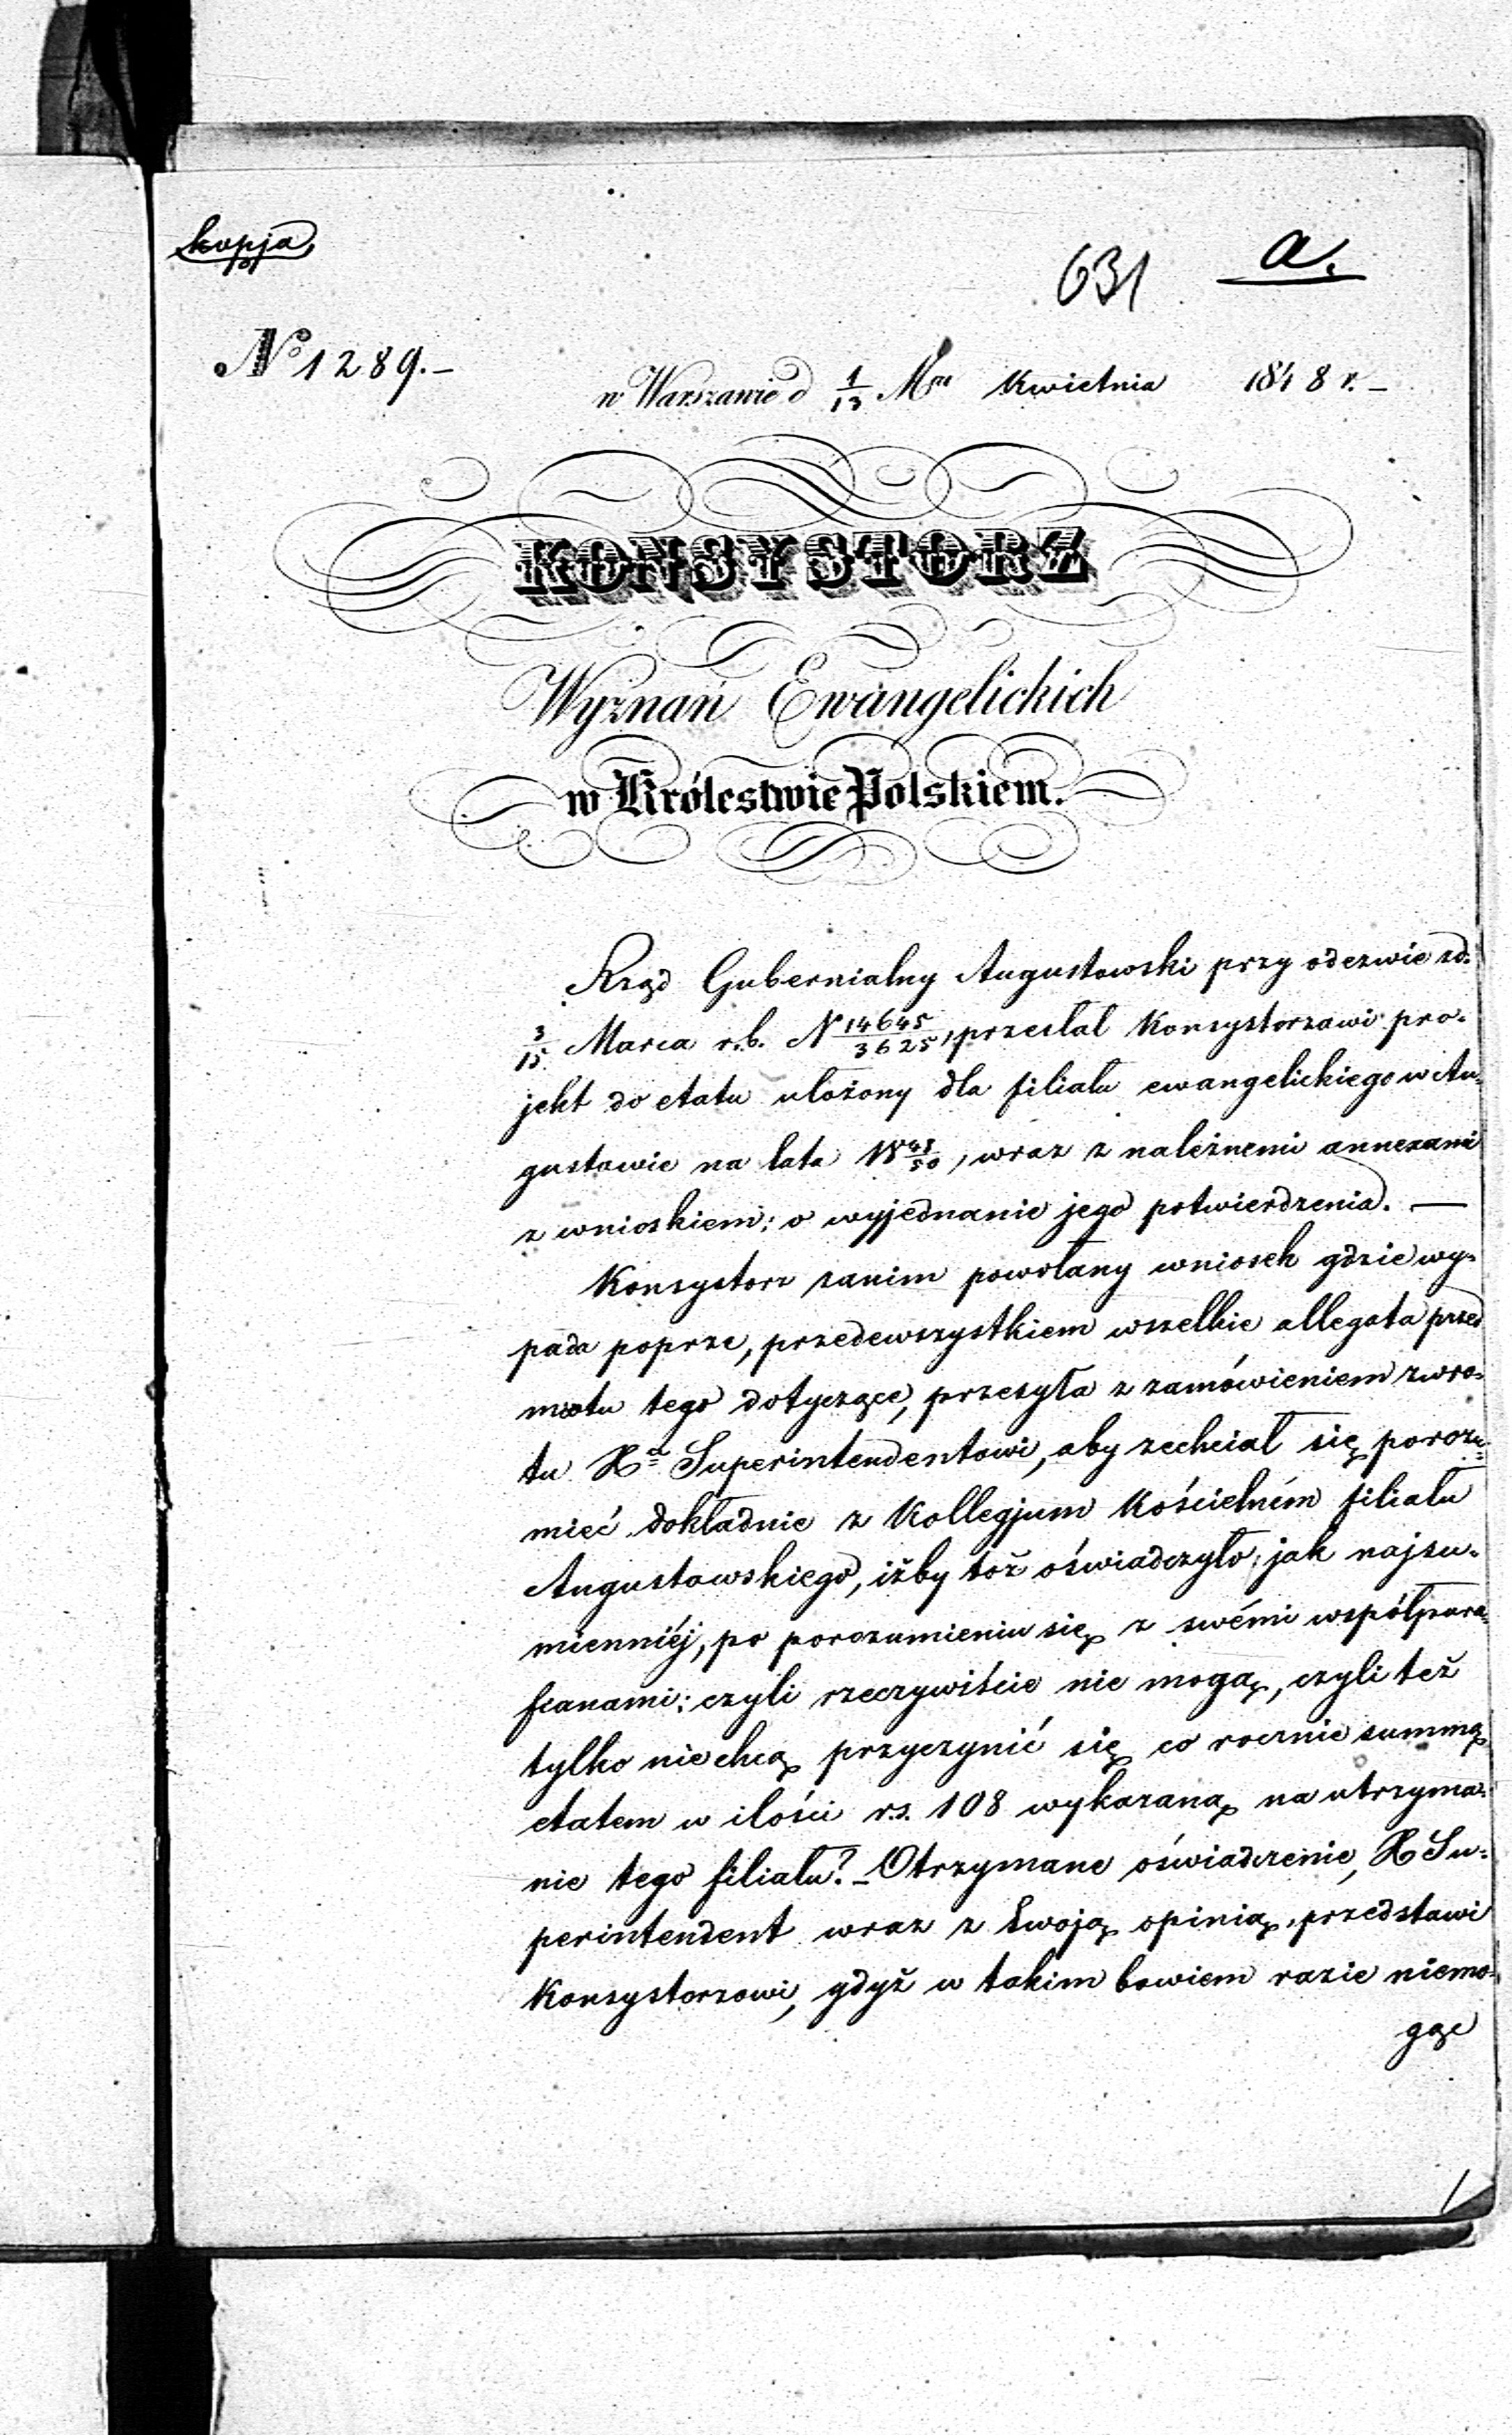 kopja
631 a.
No 1289.–
w Warszawie d 1/13 Mca Kwietnia 1848 r. –
KONSYSTORZ
Wyznań Ewangelickich
w Królestwie Polskiem.
Rząd Gubernialny Augustowski przy odezwie zd.
3/15 Marca r.b. N 14645/3625, przesłał Konsystorzowi pro-
jekt do etatu ułożony dla filiału ewangelickiego w Au-
gustowie na lata 1848/50, wraz z należnemi annexami
z wnioskiem: o wyjednanie jego potwierdzenia. —
Konsystorz zanim powołany wniosek gdzie wy-
pada poprze, przedewszystkiem wszelkie allegata przed
miotu tego dotyczące, przesyła z zamówieniem zwro-
tu Xu Superintendentowi, aby zechciał się porozu-
mieć dokładnie z Kollegjum Kościelném filiału
Augustowskiego, iżby toż oświadczyło, jak najsu-
mienniéj, po porozumieniu się z swémi współpara-
fianami: czyli rzeczywiście nie mogą, czyli też
tylko niechcą przyczynić się co rocznie summą
etatem w ilości rs. 108 wykazaną na utrzyma-
nie tego filiału? – Otrzymane oświadczenie, X Su-
perintendent wraz z Swoją opinią, przedstawi
Konsystorzowi, gdyż w takim bowiem razie niemo-
gąc
1